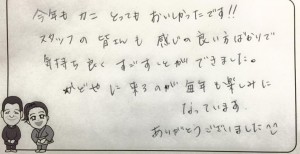 今年も カニ とっても おいしかったです!!
スタッフの 皆さんも 感じの良い方ばかりで
気持ち良く すごすことが できました。
かどやに 来るのが 毎年も 楽しみに
なっています
ありがとうございました^^